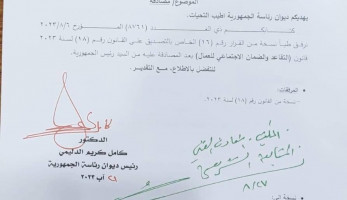 الموضوع/ مصادقة
يهديكم ديوان رئاسة الجمهورية أطيب التحيات.
ذي العدد (٨٧٦١) المؤرخ ٢٠٢٣/٨/٦
نرفق طياً نسخة من القرار رقم (١٦) الخاص بالتصديق على القانون رقم (١٨) لسنة ٢٠٢٣
قانون (التقاعد والضمان الاجتماعي للعمال) بعد المصادقة عليه من السيد رئيس الجمهورية.
للتفضل بالاطلاع.. مع التقدير.
المرفقات:
- نسخة من قانون رقم (١٨) لسنة ٢٠٢٣.
الدكتور
كامل كريم الدليمي
رئيس ديوان رئاسة الجمهورية
آب ٢٠٢٣
٨/٢٧
نسخة إلى